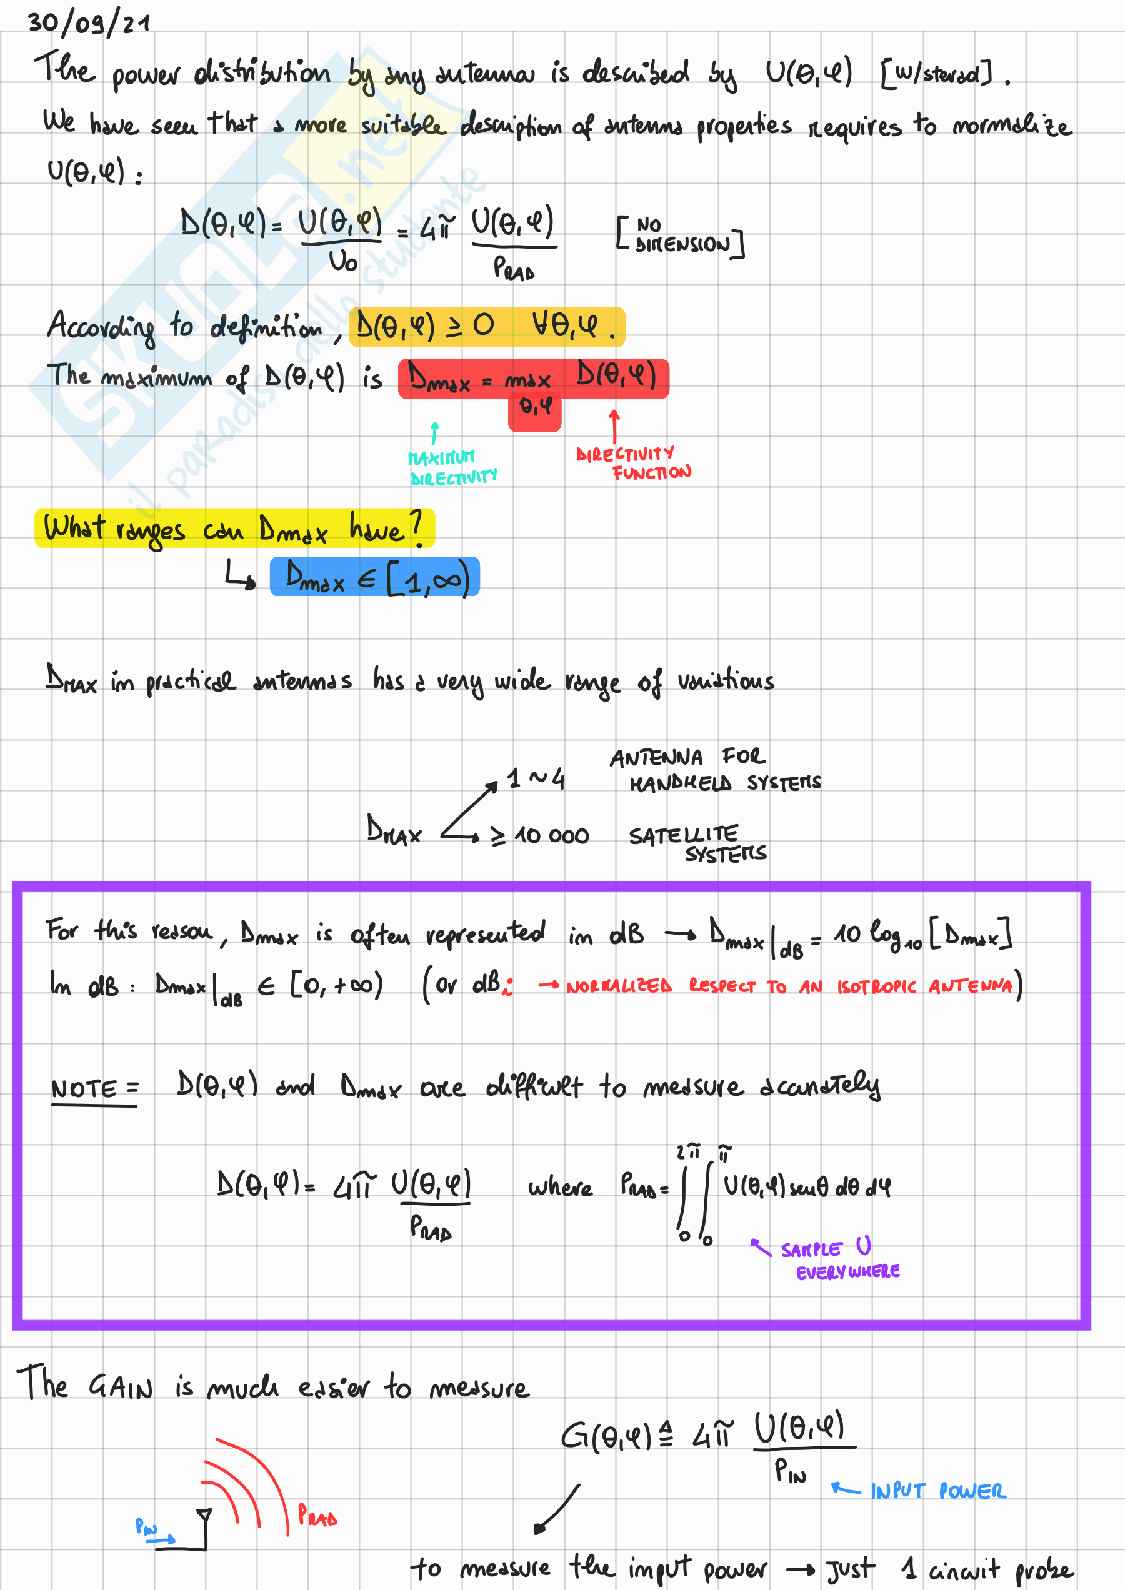 30/09/21
The power distribution by any antenna is described by U(θ,φ) [W/sterad].
We have seen that a more suitable description of antenna properties requires to normalize
U(θ,φ):
D(θ,φ) = U(θ,φ)/U0 = 4π U(θ,φ)/PRAD [NO DIMENSION]
According to definition, D(θ,φ) ≥ 0 ∀θ,φ.
The maximum of D(θ,φ) is Dmax = max D(θ,φ)
θ,φ
MAXIMUM DIRECTIVITY
DIRECTIVITY FUNCTION
What ranges can Dmax have?
↳ Dmax ∈ [1,∞)
DMAX in practical antennas has a very wide range of variations
1 ~ 4 ANTENNA FOR
HANDHELD SYSTEMS
DMAX ≥ 10 000 SATELLITE
SYSTEMS
For this reason, Dmax is often represented in dB → Dmax|dB = 10 log10 [Dmax]
In dB: Dmax|dB ∈ [0,+∞) (or dBi → NORMALIZED RESPECT TO AN ISOTROPIC ANTENNA)
NOTE = D(θ,φ) and Dmax are difficult to measure accurately
D(θ,φ) = 4π U(θ,φ)/PRAD where PRAD = ∫0^2π ∫0^π U(θ,φ) senθ dθ dφ
SAMPLE U
EVERYWHERE
The GAIN is much easier to measure
G(θ,φ) ≜ 4π U(θ,φ)/PIN
← INPUT POWER
PIN PRAD
to measure the input power → Just 1 circuit probe
SKUOLA.net
il paradiso dello studente